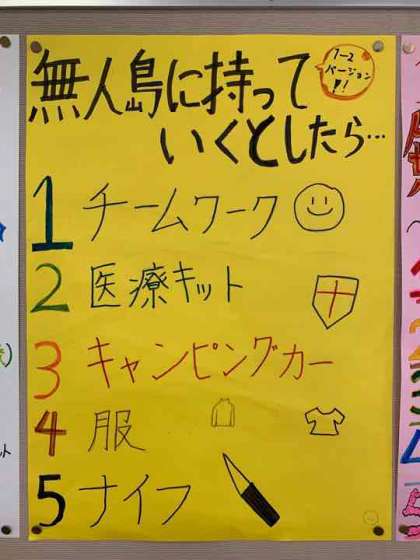 無人島に持って
いくとしたら…
1-2
バージョン
!!
1 チームワーク
2 医療キット
3 キャンピングカー
4 服
5 ナイフ